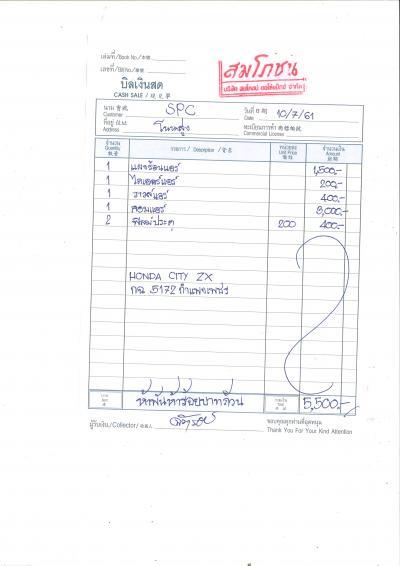 เล่มที่/Book No./本號
เลขที่/Bill No./號
สมโภชน
บริษัท สมโภชน์ ออโต้พาร์ท จำกัด
บิลเงินสด
CASH SALE / 現兌單
นาม
Customer SPC
วันที่
Date 10/7/61
ที่อยู่
Address โนนสูง
ทะเบียนการค้า
Commercial License
จำนวน รายการ / Description / 貨名 หน่วยละ จำนวนเงิน
Quantity Unit Price Amount
1 แผงร้อนแอร์ 1,500.-
1 ไดเออร์แอร์ 200.-
1 วาวล์แอร์ 400.-
1 คอมแอร์ 3,000.-
2 ฟิล์มประตู 200 400.-
HONDA CITY ZX
กฉ 5172 กำแพงเพชร
ห้าพันห้าร้อยบาทถ้วน 5,500.-
ผู้รับเงิน/Collector/
ขอบคุณทุกท่านที่อุดหนุน
Thank You For Your Kind Attention